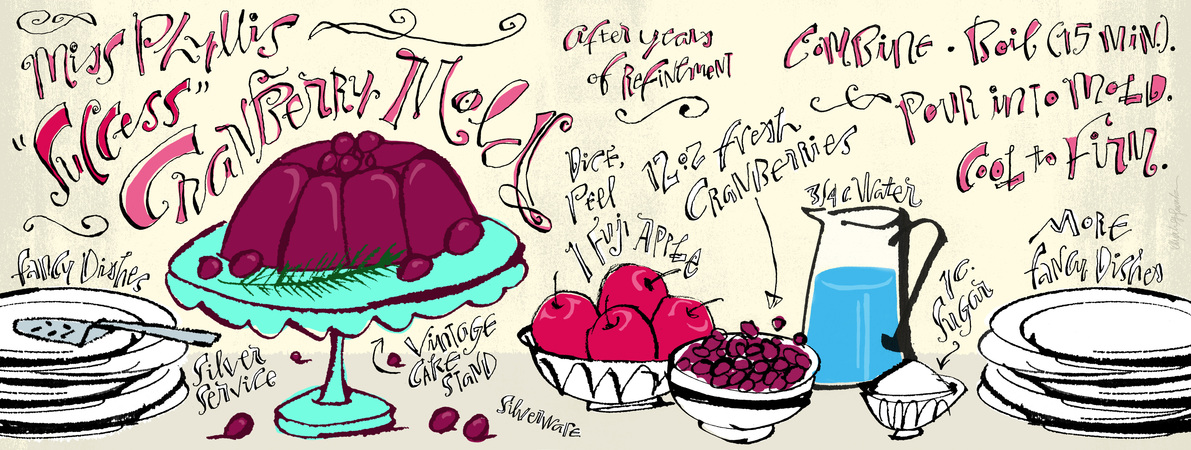 Miss Phyllis
"Success"
Cranberry Mold
After years
of Refinement
Combine · Boil (15 min).
Pour into Mold.
Cool to Firm.
Dice,
Peel
1 Fuji Apple
12 oz fresh
Cranberries
3/4 c Water
1 c.
Sugar
More
fancy Dishes
fancy Dishes
Silver
Service
Vintage
Cake
Stand
Silverware